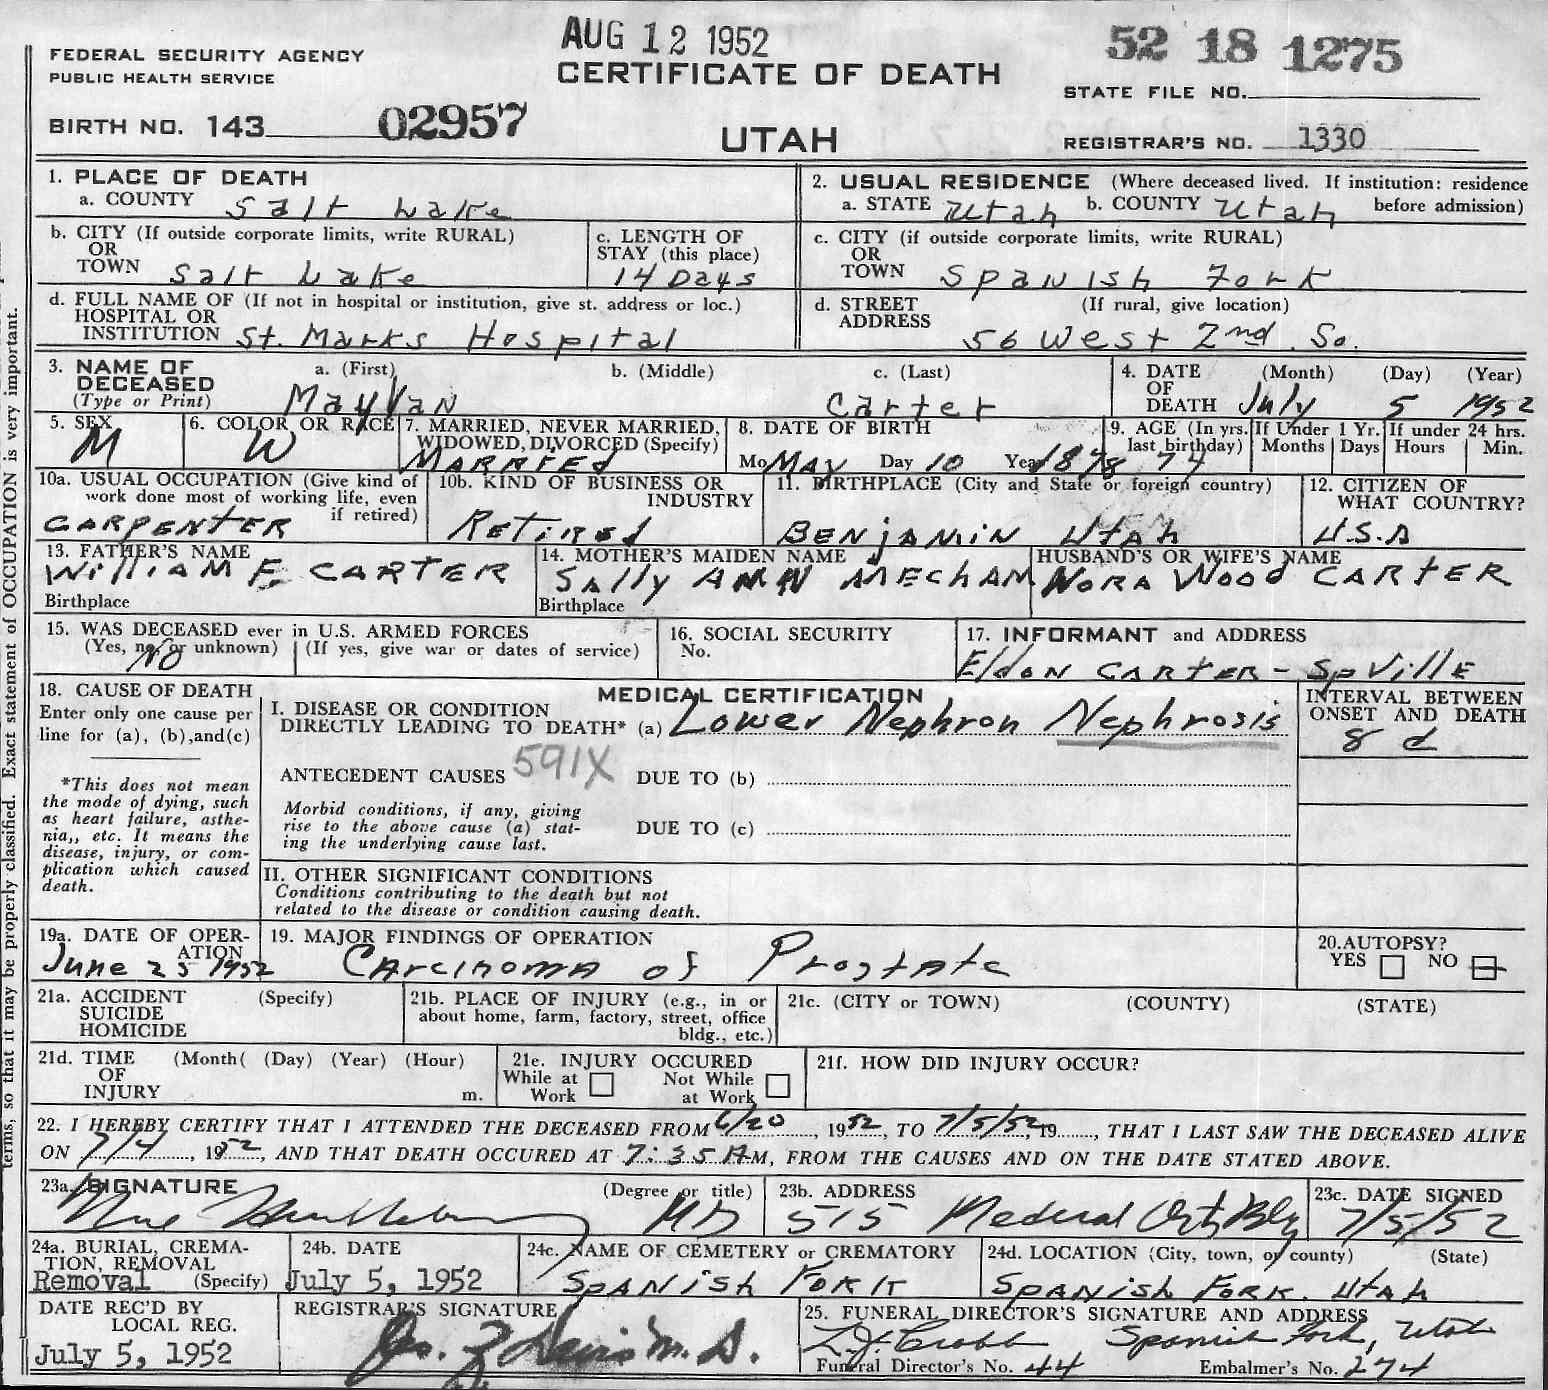 AUG 12 1952
52 18 1275
FEDERAL SECURITY AGENCY
PUBLIC HEALTH SERVICE
CERTIFICATE OF DEATH
STATE FILE NO.
BIRTH NO. 143 02957
UTAH
REGISTRAR'S NO. 1330
terms, so that it may be properly classified. Exact statement of OCCUPATION is very important.
1. PLACE OF DEATH
a. COUNTY Salt Lake
2. USUAL RESIDENCE (Where deceased lived. If institution: residence before admission)
a. STATE Utah b. COUNTY Utah
b. CITY (If outside corporate limits, write RURAL)
OR
TOWN Salt Lake
c. LENGTH OF
STAY (this place)
14 Days
c. CITY (if outside corporate limits, write RURAL)
OR
TOWN Spanish Fork
d. FULL NAME OF (If not in hospital or institution, give st. address or loc.)
HOSPITAL OR
INSTITUTION St. Marks Hospital
d. STREET (If rural, give location)
ADDRESS
56 West 2nd. So.
3. NAME OF a. (First) b. (Middle) c. (Last)
DECEASED
(Type or Print) MayVan Carter
4. DATE (Month) (Day) (Year)
OF
DEATH July 5 1952
5. SEX
M
6. COLOR OR RACE
W
7. MARRIED, NEVER MARRIED,
WIDOWED, DIVORCED (Specify)
MARRIED
8. DATE OF BIRTH
Mo MAY Day 10 Year 1878
9. AGE (In yrs. last birthday)
74
If Under 1 Yr.
Months Days
If under 24 hrs.
Hours Min.
10a. USUAL OCCUPATION (Give kind of
work done most of working life, even
if retired)
CARPENTER
10b. KIND OF BUSINESS OR
INDUSTRY
Retired
11. BIRTHPLACE (City and State or foreign country)
BENJAMIN UtAh
12. CITIZEN OF
WHAT COUNTRY?
U.S.A
13. FATHER'S NAME
William F. CARTER
Birthplace
14. MOTHER'S MAIDEN NAME
Sally ANN MECHAM
Birthplace
HUSBAND'S OR WIFE'S NAME
NORA Wood CARTER
15. WAS DECEASED ever in U.S. ARMED FORCES
(Yes, no, or unknown) (If yes, give war or dates of service)
NO
16. SOCIAL SECURITY
No.
17. INFORMANT and ADDRESS
Eldon CARTER - SpVille
18. CAUSE OF DEATH
Enter only one cause per
line for (a), (b),and(c)
*This does not mean
the mode of dying, such
as heart failure, asthe-
nia,, etc. It means the
disease, injury, or com-
plication which caused
death.
MEDICAL CERTIFICATION
I. DISEASE OR CONDITION
DIRECTLY LEADING TO DEATH* (a) Lower Nephron Nephrosis
INTERVAL BETWEEN
ONSET AND DEATH
8 d
ANTECEDENT CAUSES 591X DUE TO (b)
Morbid conditions, if any, giving
rise to the above cause (a) stat-
ing the underlying cause last.
DUE TO (c)
II. OTHER SIGNIFICANT CONDITIONS
Conditions contributing to the death but not
related to the disease or condition causing death.
19a. DATE OF OPER-
ATION
June 25 1952
19. MAJOR FINDINGS OF OPERATION
Carcinoma of Prostate
20.AUTOPSY?
YES NO
21a. ACCIDENT (Specify)
SUICIDE
HOMICIDE
21b. PLACE OF INJURY (e.g., in or
about home, farm, factory, street, office
bldg., etc.)
21c. (CITY or TOWN) (COUNTY) (STATE)
21d. TIME (Month( (Day) (Year) (Hour)
OF
INJURY m.
21e. INJURY OCCURED
While at Work Not While at Work
21f. HOW DID INJURY OCCUR?
22. I HEREBY CERTIFY THAT I ATTENDED THE DECEASED FROM 6/20, 1952, TO 7/5/52, 19, THAT I LAST SAW THE DECEASED ALIVE
ON 7/4, 1952, AND THAT DEATH OCCURED AT 7:35 AM, FROM THE CAUSES AND ON THE DATE STATED ABOVE.
23a. SIGNATURE (Degree or title)
MD
23b. ADDRESS
515 Medical Arts Bldg
23c. DATE SIGNED
7/5/52
24a. BURIAL, CREMA-
TION, REMOVAL
Removal (Specify)
24b. DATE
July 5, 1952
24c. NAME OF CEMETERY or CREMATORY
SPANish FORK
24d. LOCATION (City, town, or county) (State)
SPANish FORK. UtAh
DATE REC'D BY
LOCAL REG.
July 5, 1952
REGISTRAR'S SIGNATURE
M. D.
25. FUNERAL DIRECTOR'S SIGNATURE AND ADDRESS
Spanish Fork, Utah
Funeral Director's No. 44 Embalmer's No. 274